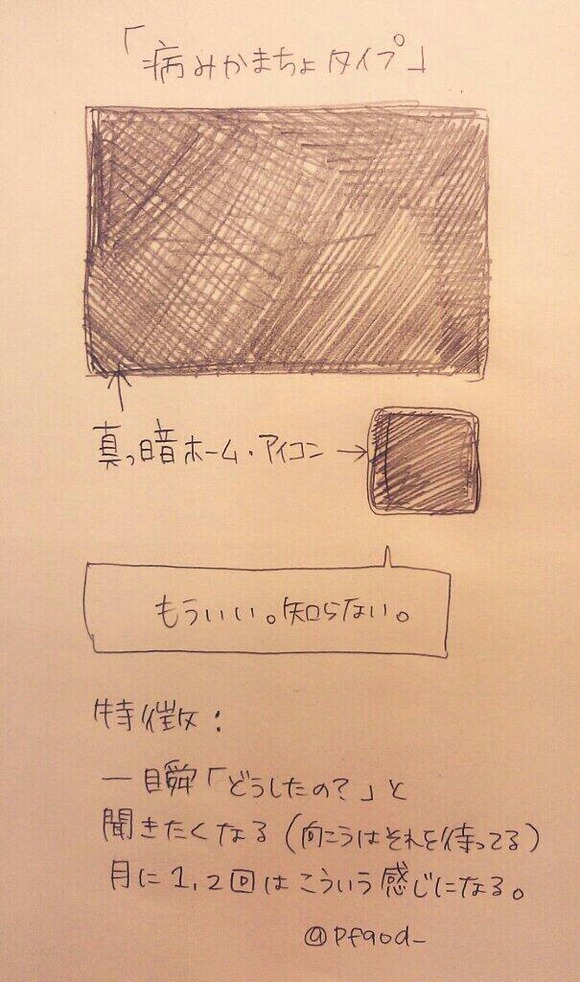 「病みかまちょタイプ」
真っ暗ホーム・アイコン→
もういい。知らない。
特徴:
一瞬「どうしたの?」と
聞きたくなる(向こうはそれを待ってる)
月に1,2回はこういう感じになる。
@pfaod_